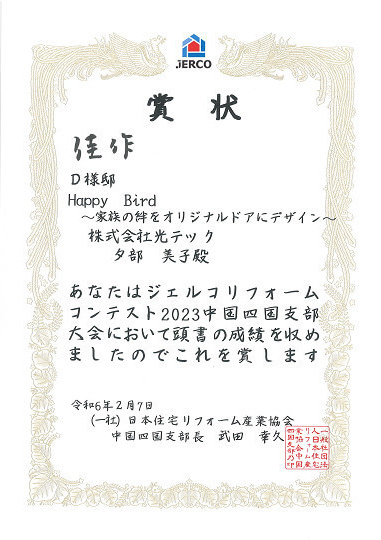 JERCO
賞状
佳作
D様邸
Happy Bird
～家族の絆をオリジナルドアにデザイン～
株式会社光テック
夕部 美子殿
あなたはジェルコリフォーム
コンテスト2023中国四国支部
大会において頭書の成績を収め
ましたのでこれを賞します
令和6年2月7日
(一社)日本住宅リフォーム産業協会
中国四国支部長 武田 幸久